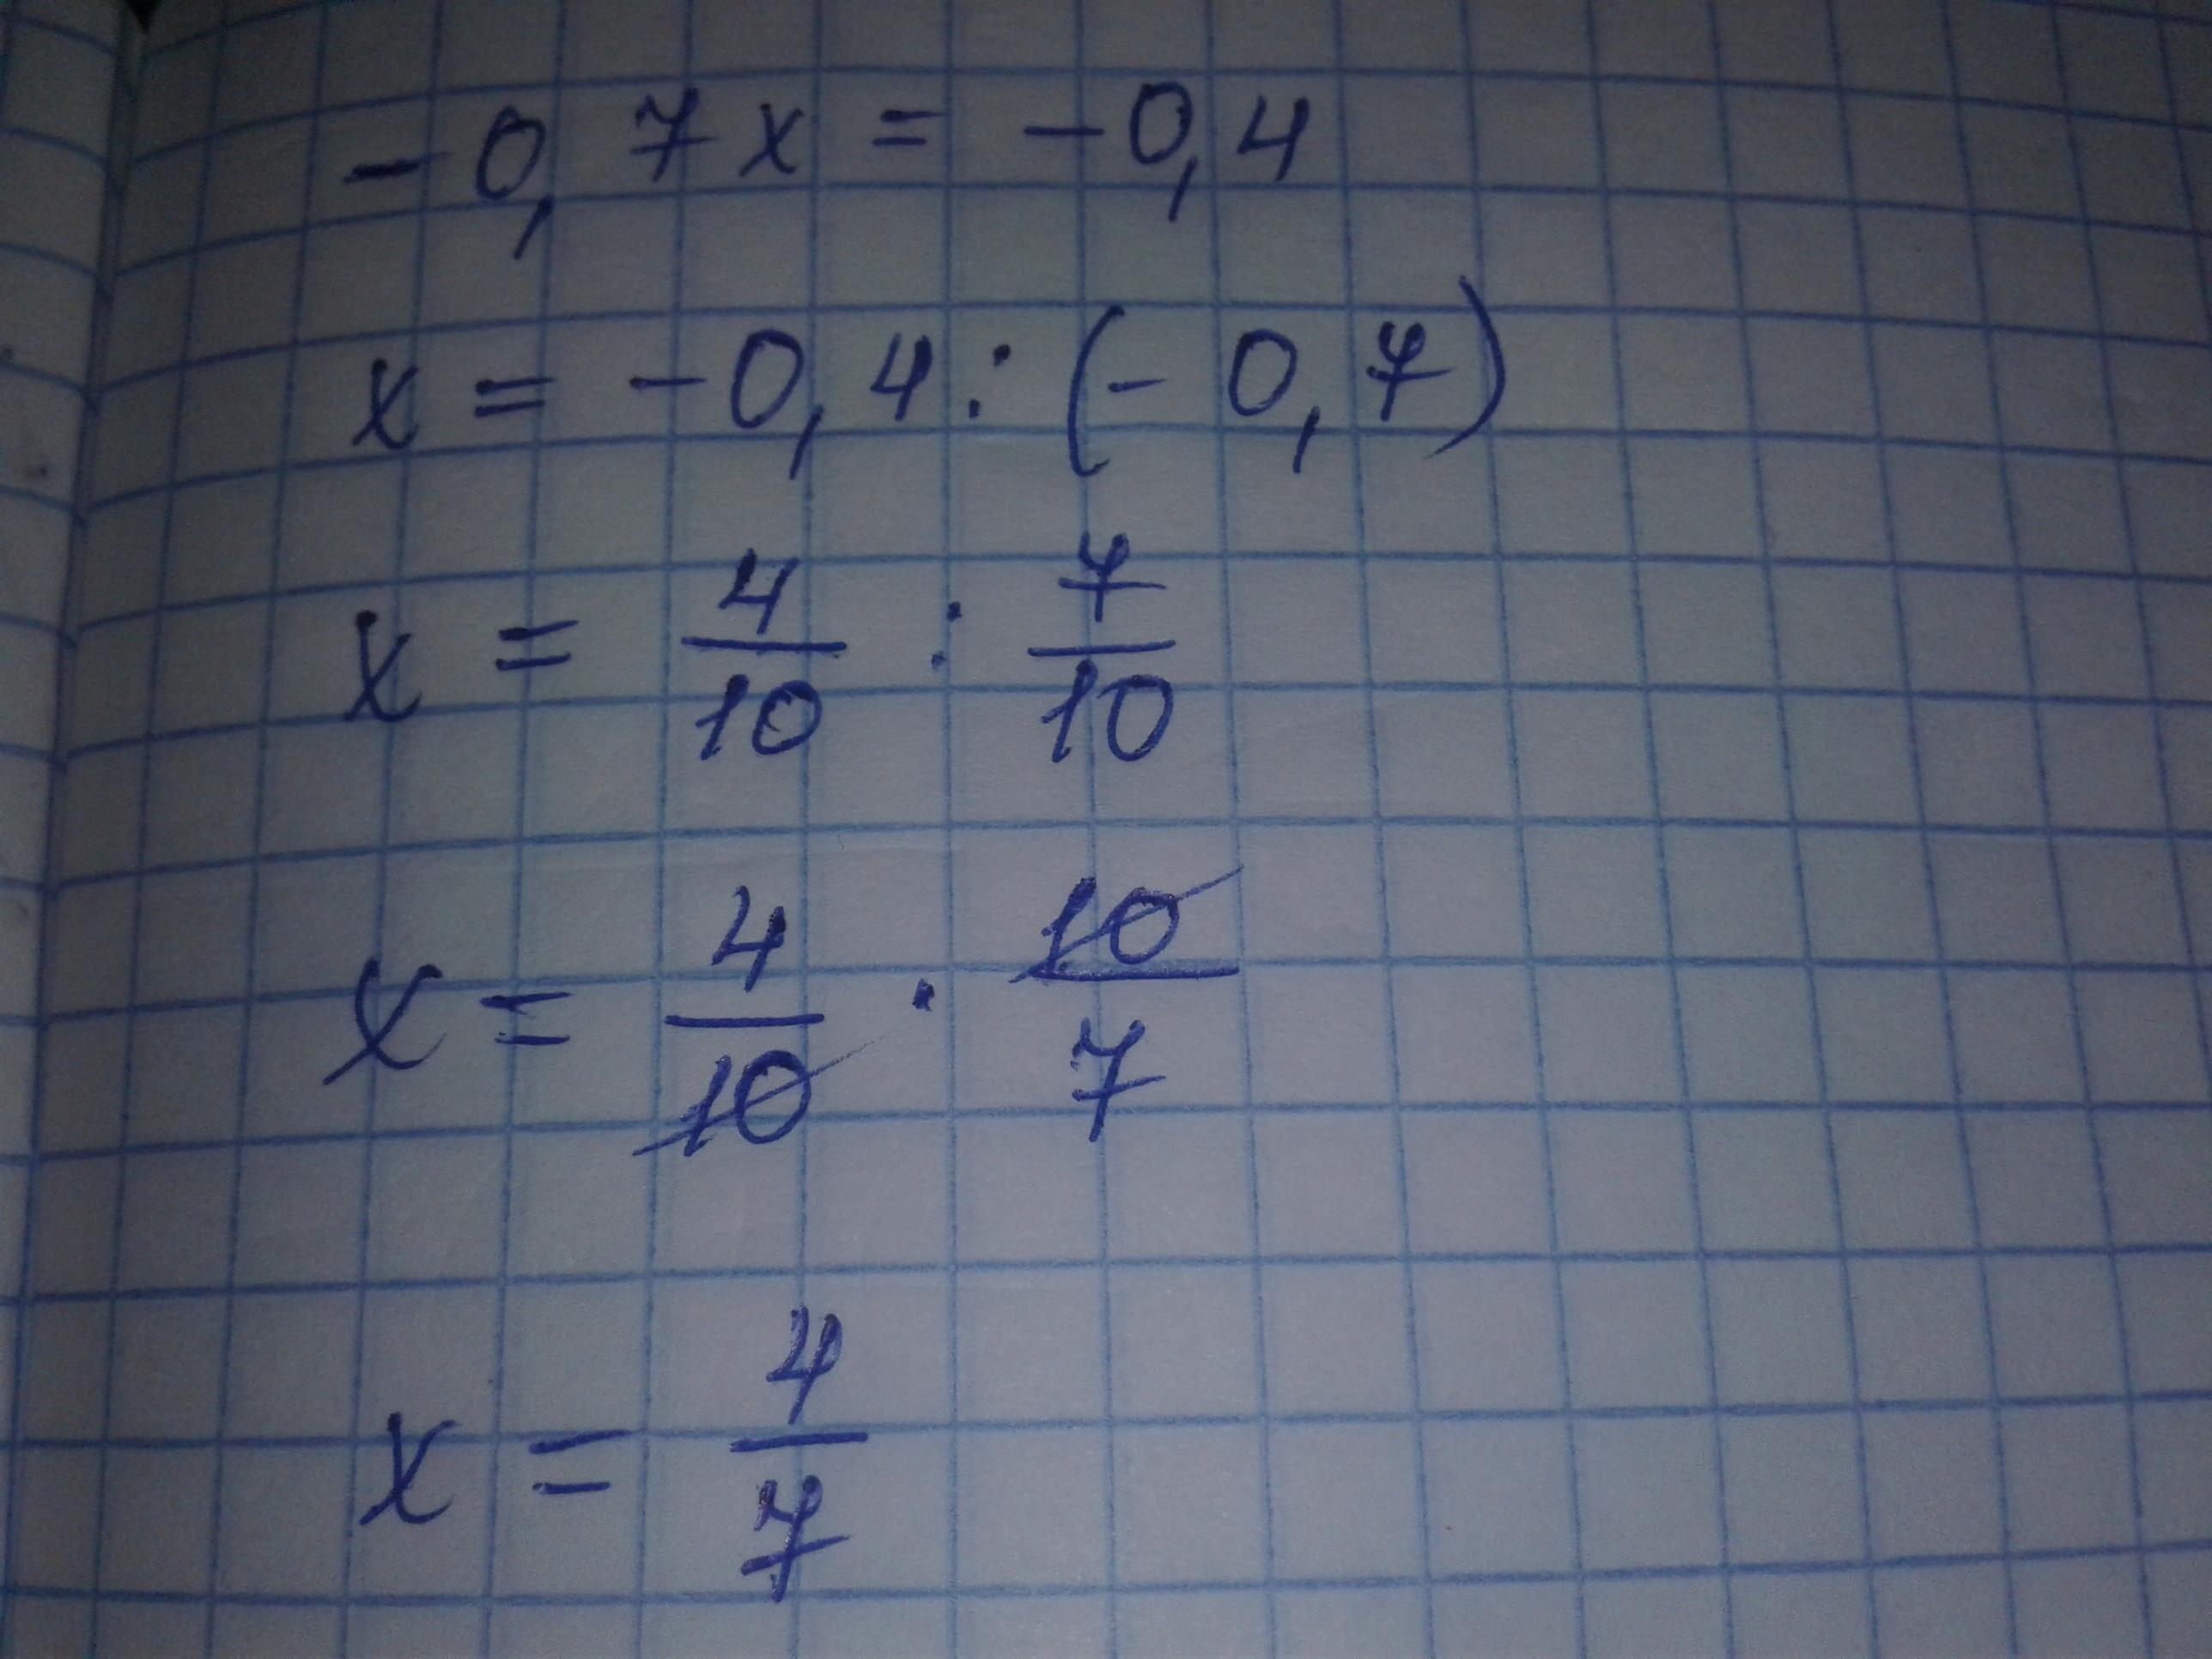 -0,7x = -0,4
x = -0,4 : (-0,7)
x = 4/10 : 7/10
x = 4/10 · 10/7
x = 4/7